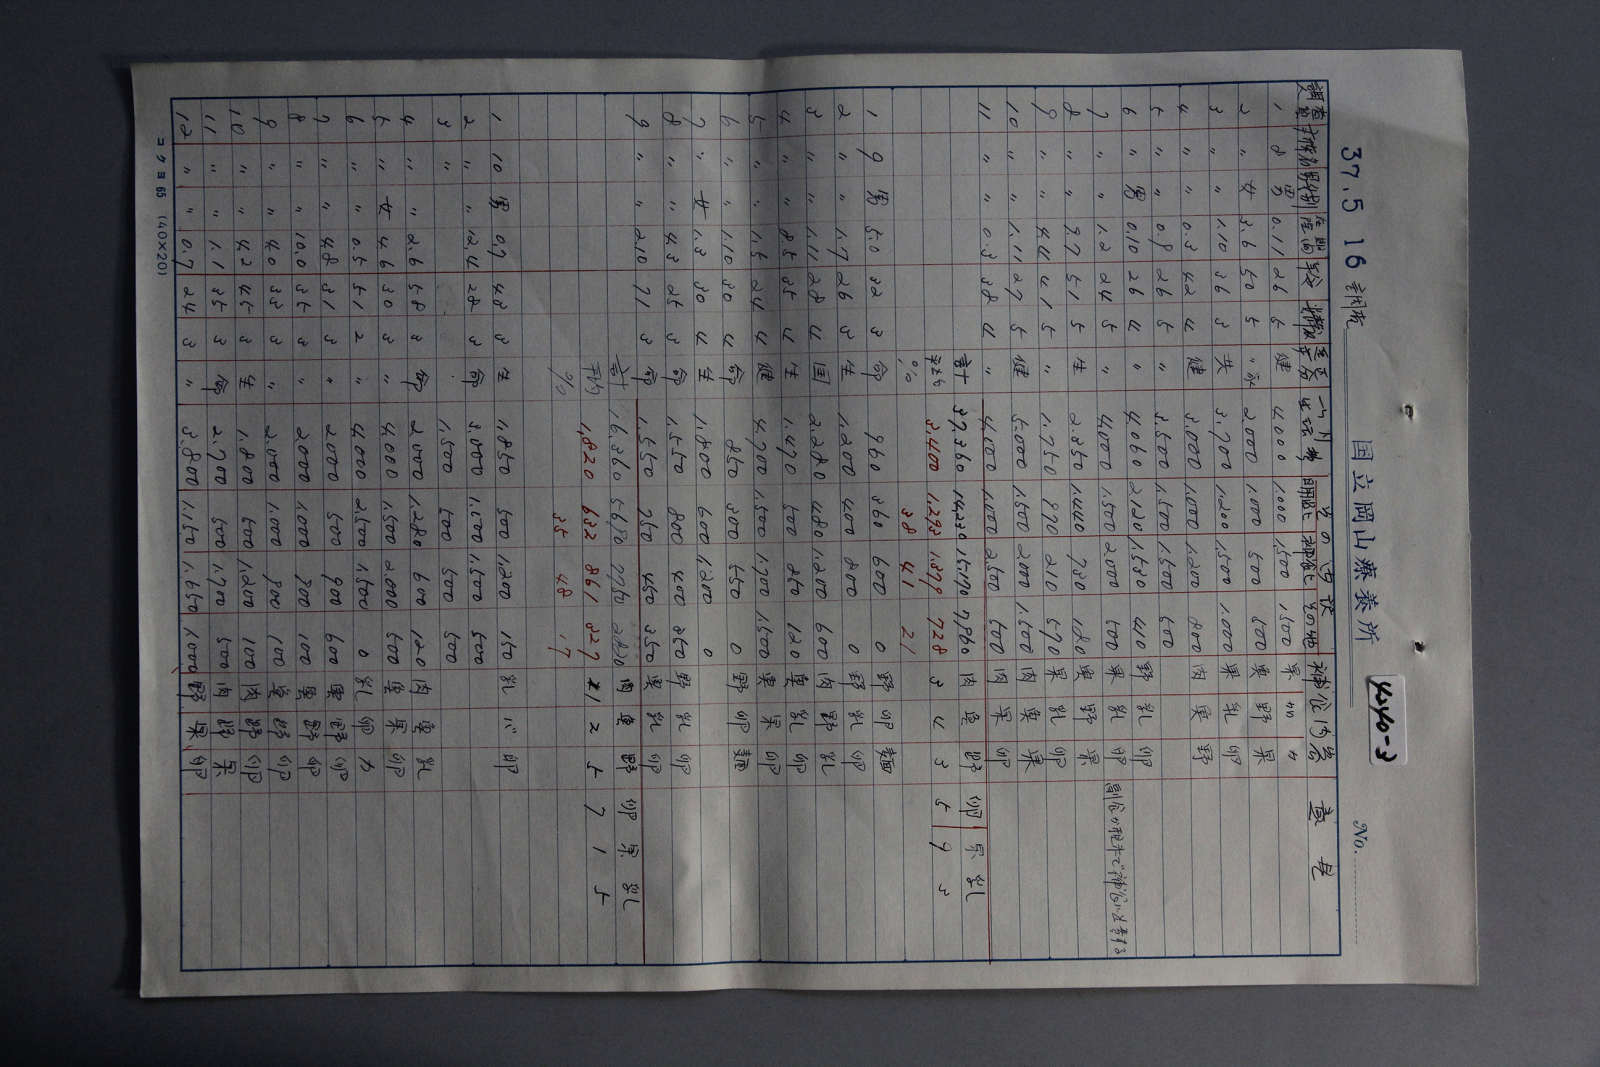 37.5 16 調査
国立岡山療養所
ツソ10-3
No.
調査人員 病棟別 男女別 在所年月 年令 安静度 区分 一ヶ月生活費 嗜好 補食 其の他 補食内容 意見
その内訳
1 8 男 0.11 26 5 健 4.000 1.000 1.500 1.500 果
2 〃 女 3.6 50 5 2.000 1.000 500 500 魚 野 果
3 〃 〃 1.10 36 3 共 3.700 1.200 1.500 1.000 果 乳 卵
4 〃 〃 0.3 42 4 健 3.000 1.000 1.200 800 肉 魚 野
5 〃 〃 0.8 26 5 〃 3.500 1.500 1.500 500
6 〃 男 0.10 26 4 〃 4.060 2.220 1.530 410 野 乳 卵
7 〃 〃 1.2 24 5 〃 4.000 1.500 2.000 500 果 乳 卵
8 〃 〃 3.7 51 5 生 2.350 1.440 730 180 魚 野 果
9 〃 〃 4.4 41 5 1.750 870 210 570 果 乳 卵
10 〃 〃 1.11 27 5 健 5.000 1.500 2.000 1.500 肉 魚 果
11 〃 〃 0.3 38 4 〃 4.000 1.000 2.500 500 肉 果 卵
計 37.360 14.230 15.170 7.960 肉 魚 野 卵 果 乳
平均 3.400 1.293 1.379 728 3 4 3 5 9 5
% 38 41 21
1 9 男 5.0 32 3 命 960 360 600 0 野 卵 麺
2 〃 〃 1.7 26 3 生 1.200 400 800 0 野 乳 卵
3 〃 〃 1.11 28 4 国 2.280 480 1.200 600 肉 野 乳
4 〃 〃 8.5 35 4 生 1.470 500 850 120 魚 乳 卵
5 〃 〃 1.5 24 4 健 4.700 1.500 1.700 1.500 魚 果 卵
6 〃 〃 1.10 30 4 命 850 300 550 0 野 卵 麺
7 〃 女 1.3 30 4 生 1.800 600 1.200 0
8 〃 〃 4.3 25 3 命 1.550 800 400 350 野 乳 卵
9 〃 〃 2.0 71 3 命 1.550 750 450 350 魚 乳 卵
計 16.360 5.690 7.750 2.920 肉 魚 野 卵 果 乳
平均 1.820 632 861 327 2 5 7 1 5
% 35 48 17
1 10 男 0.7 42 3 生 1.850 500 1.200 150 乳 パ 卵
2 〃 〃 12.4 28 3 命 3.000 1.000 1.500 500
3 〃 1.500 500 500 500
4 〃 〃 2.6 58 3 命 2.000 1.280 600 120 肉 魚 乳
5 〃 女 4.6 30 3 〃 4.000 1.500 2.000 500 魚 果 卵
6 〃 〃 0.5 51 2 〃 4.000 2.500 1.500 0 乳 卵
7 〃 〃 4.8 31 3 〃 2.000 500 900 600 魚 野 卵
8 〃 〃 10.0 35 3 〃 2.000 1.000 900 100 魚 野 卵
9 〃 〃 4.0 33 3 〃 2.000 1.000 900 100 魚 野 卵
10 〃 〃 4.2 45 3 生 1.800 500 1.200 100 肉 野 卵
11 〃 〃 1.1 35 3 命 2.700 500 1.700 500 肉 野 果
12 〃 〃 0.7 24 3 〃 3.800 1.150 1.650 1.000 野 果 卵
コクヨ 65 (40×20)